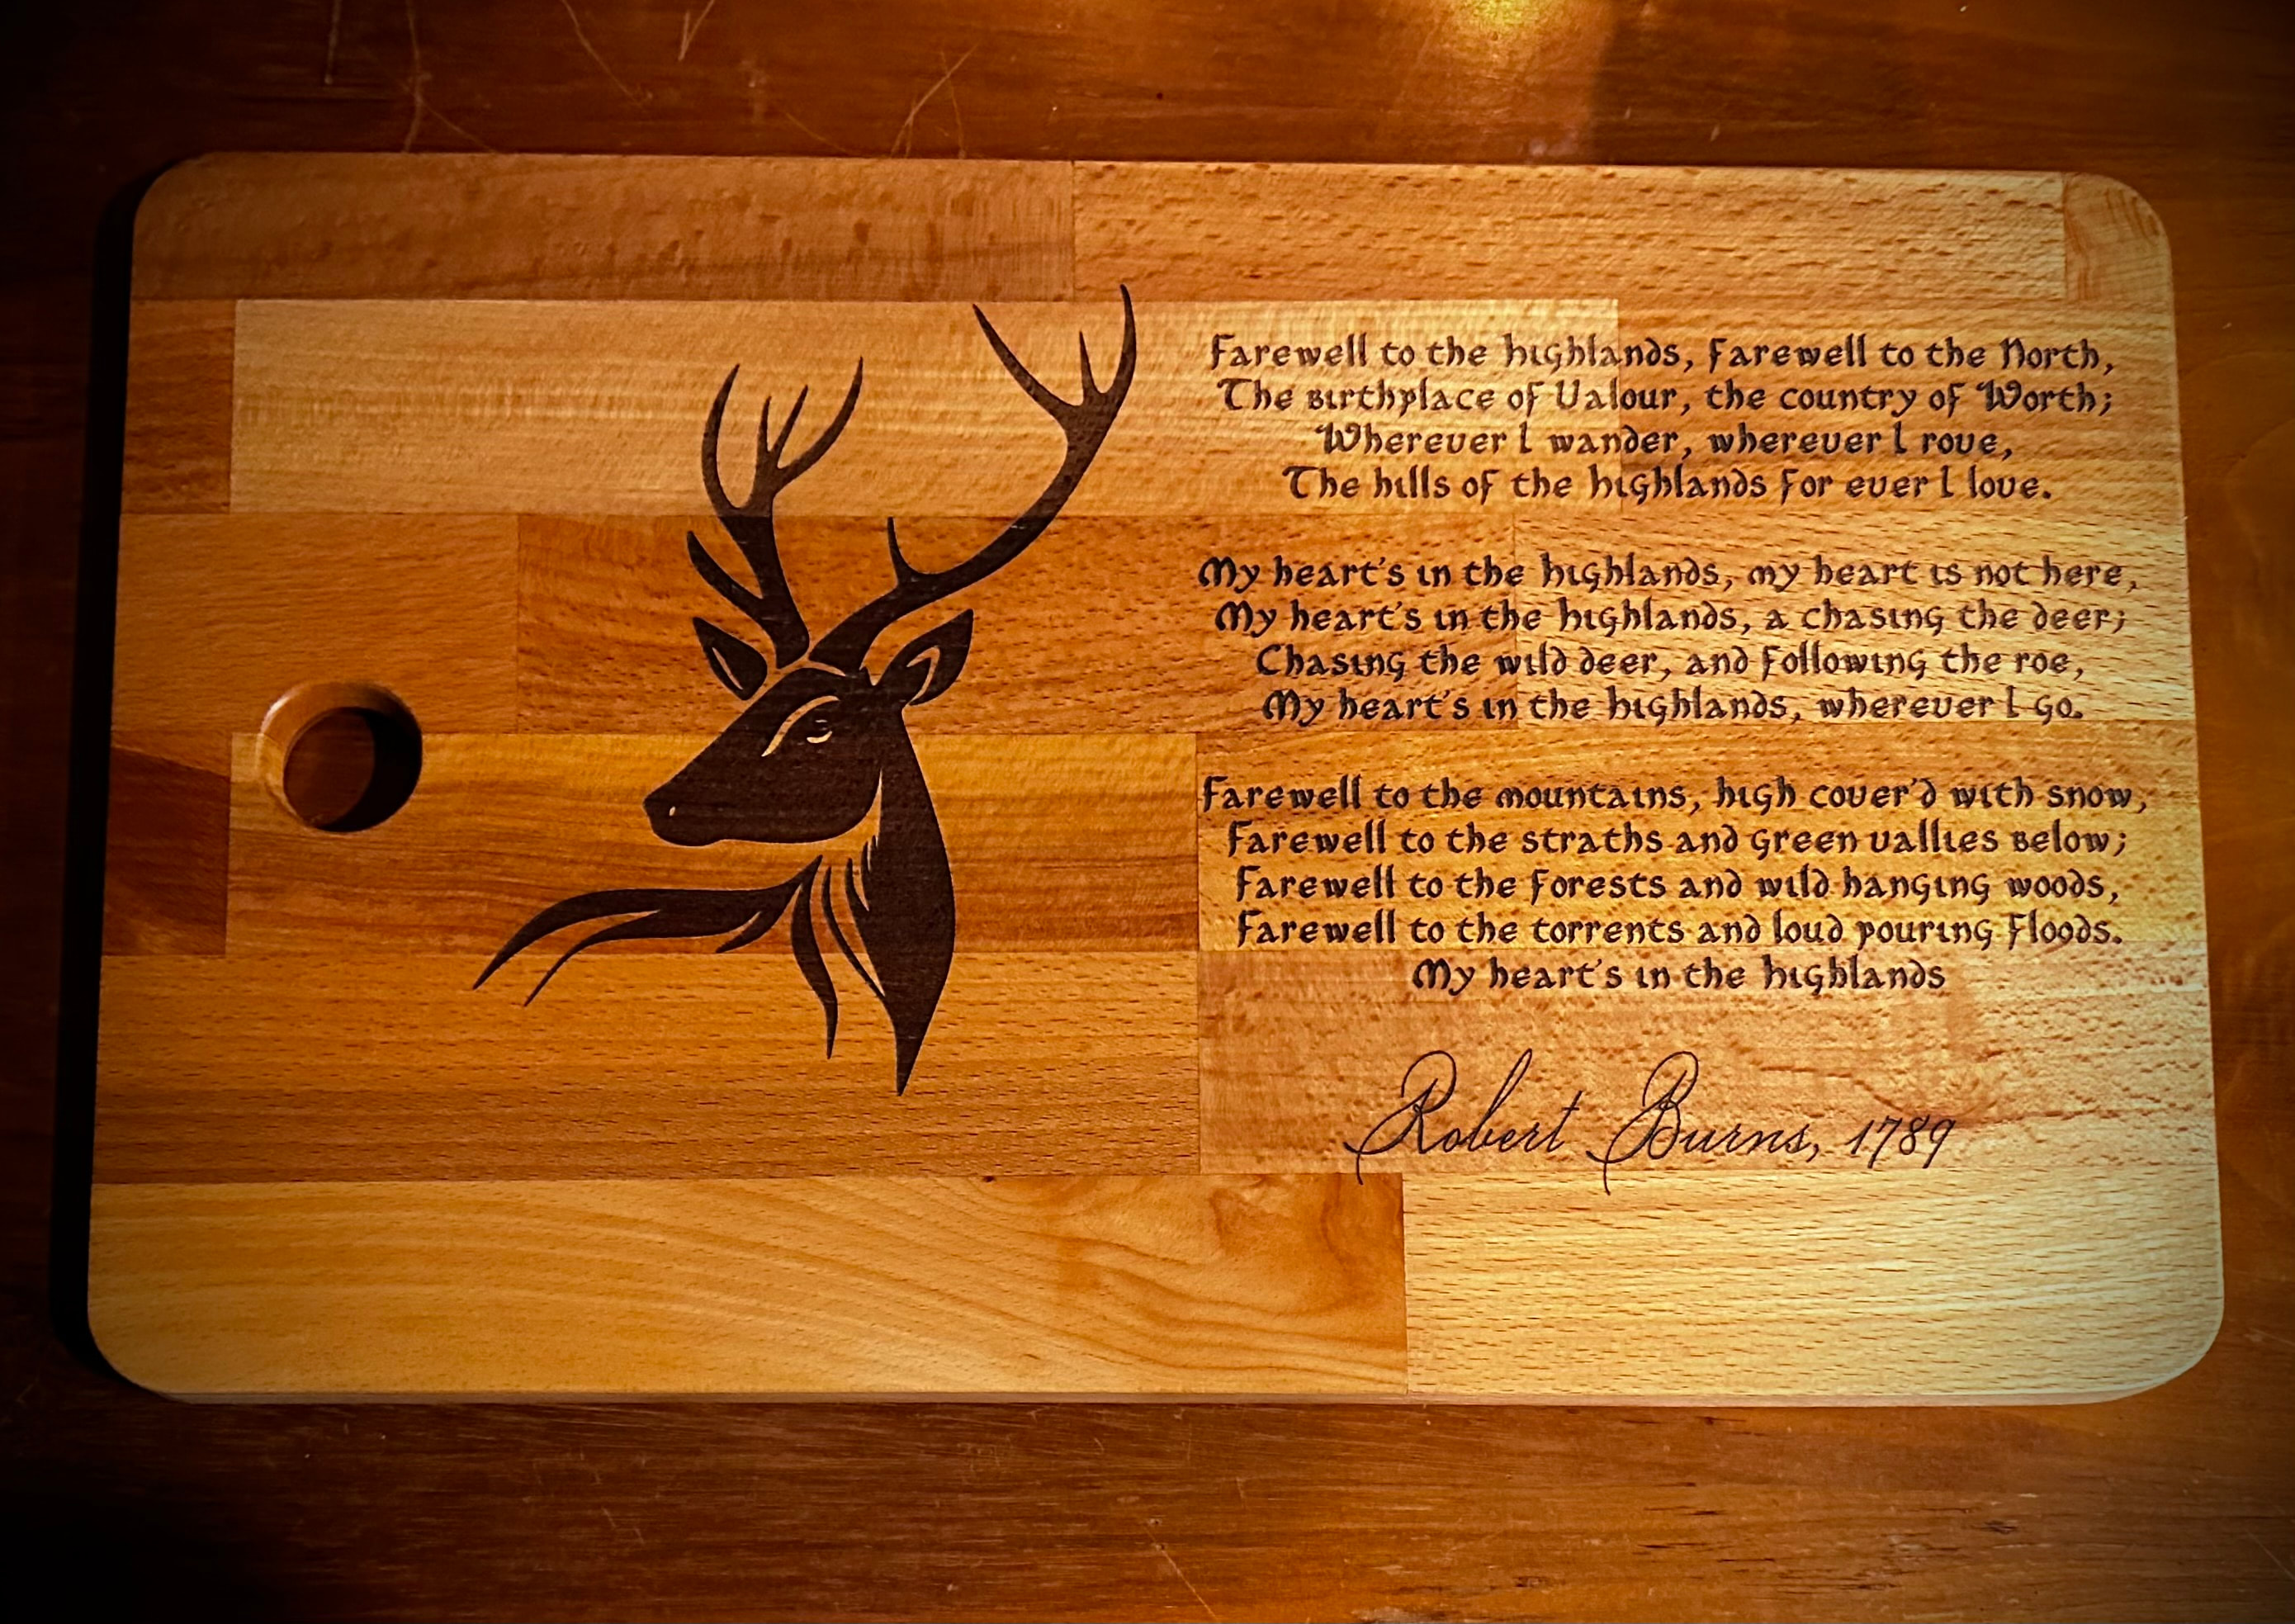 Farewell to the highlands, farewell to the North,
The birthplace of Valour, the country of Worth;
Wherever I wander, wherever I rove,
The hills of the highlands for ever I love.
My heart's in the highlands, my heart is not here,
My heart's in the highlands, a chasing the deer;
Chasing the wild deer, and following the roe,
My heart's in the highlands, wherever I go.
Farewell to the mountains, high cover'd with snow,
Farewell to the straths and green vallies below;
Farewell to the forests and wild hanging woods,
Farewell to the torrents and loud pouring floods.
My heart's in the highlands
Robert Burns, 1789